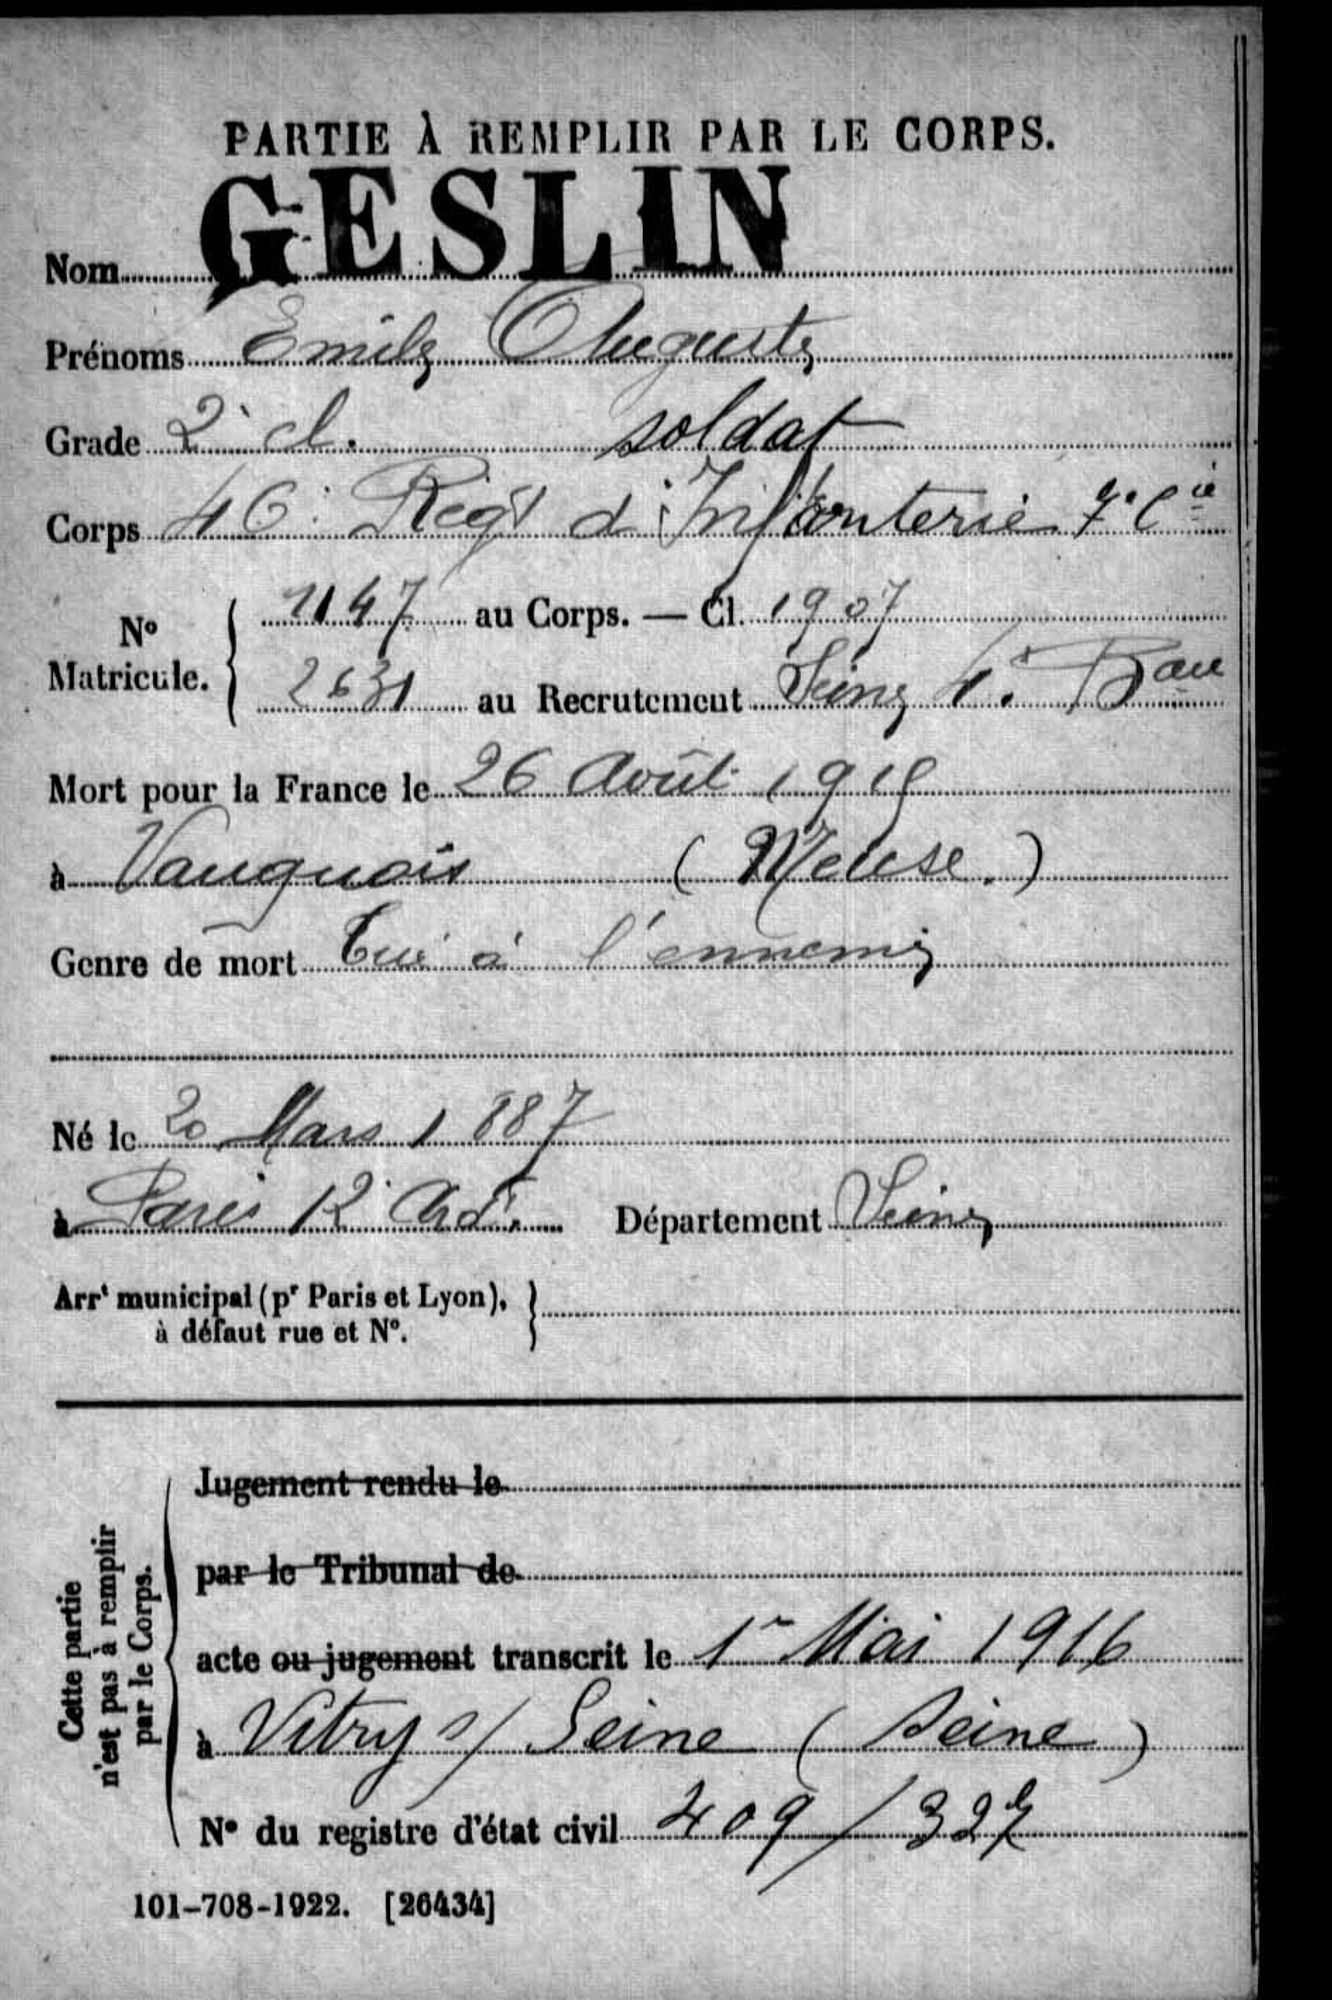 PARTIE À REMPLIR PAR LE CORPS.
Nom GESLIN
Prénoms Emile Auguste
Grade 2e cl. soldat
Corps 46e Régt d'Infanterie 7e Cie
No Matricule. 1147 au Corps. — Cl. 1907
2631 au Recrutement Seine 4e Bau
Mort pour la France le 26 Août 1915
à Vauquois (Meuse.)
Genre de mort Tué à l'ennemi
Né le 20 Mars 1887
à Paris 12e Ardt. Département Seine
Arrt municipal (pr Paris et Lyon),
à défaut rue et No.
Cette partie
n'est pas à remplir
par le Corps.
Jugement rendu le
par le Tribunal de
acte ou jugement transcrit le 1er Mai 1916
à Vitry s/ Seine (Seine)
No du registre d'état civil 409/327
101-708-1922. [26434]